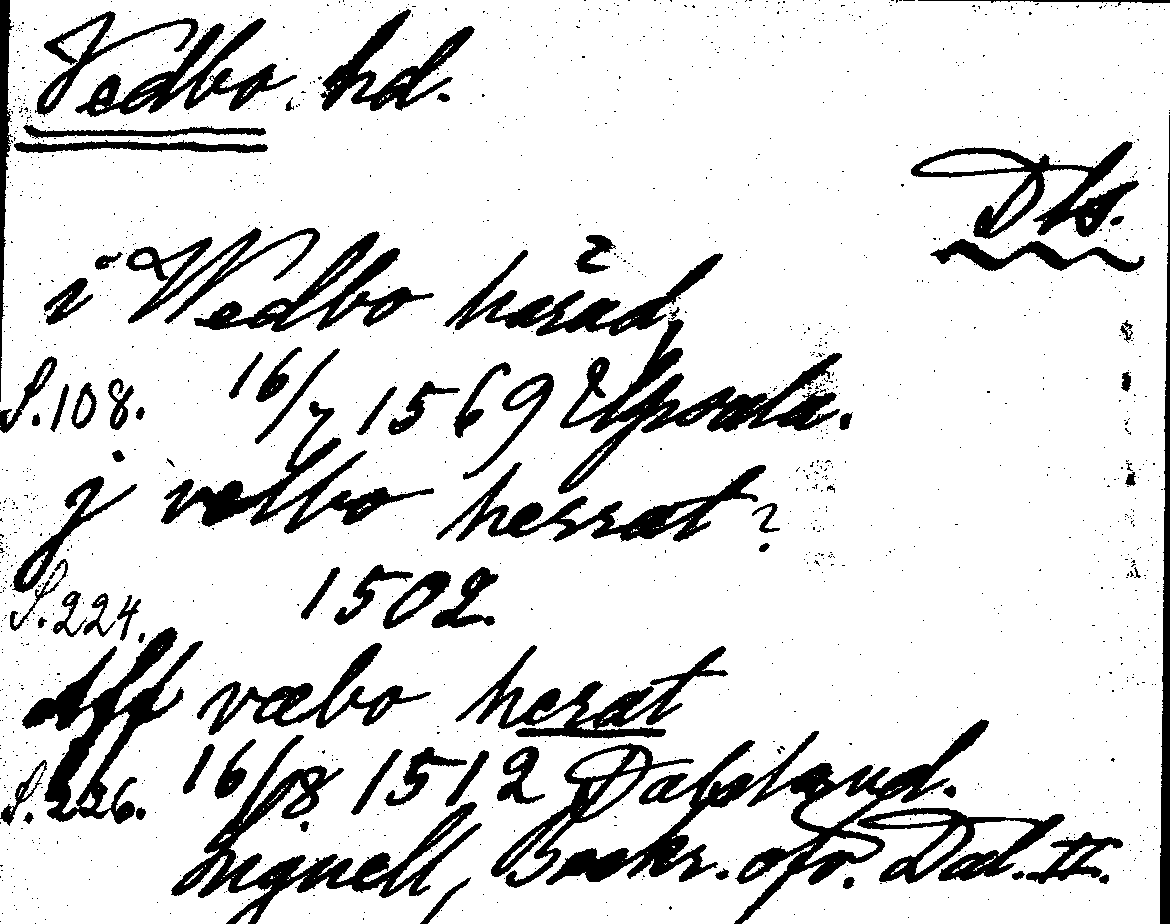 Vedbo hd.
Dls.
i Wedbo härad,
S.108. 16/7 1569 Upsala.
j vætbo herrat?
S.224. 1502.
Aff væbo herat
S.226. 16/8 1512 Dalsland.
Lignell, Beskr. öfv. Dal. II.